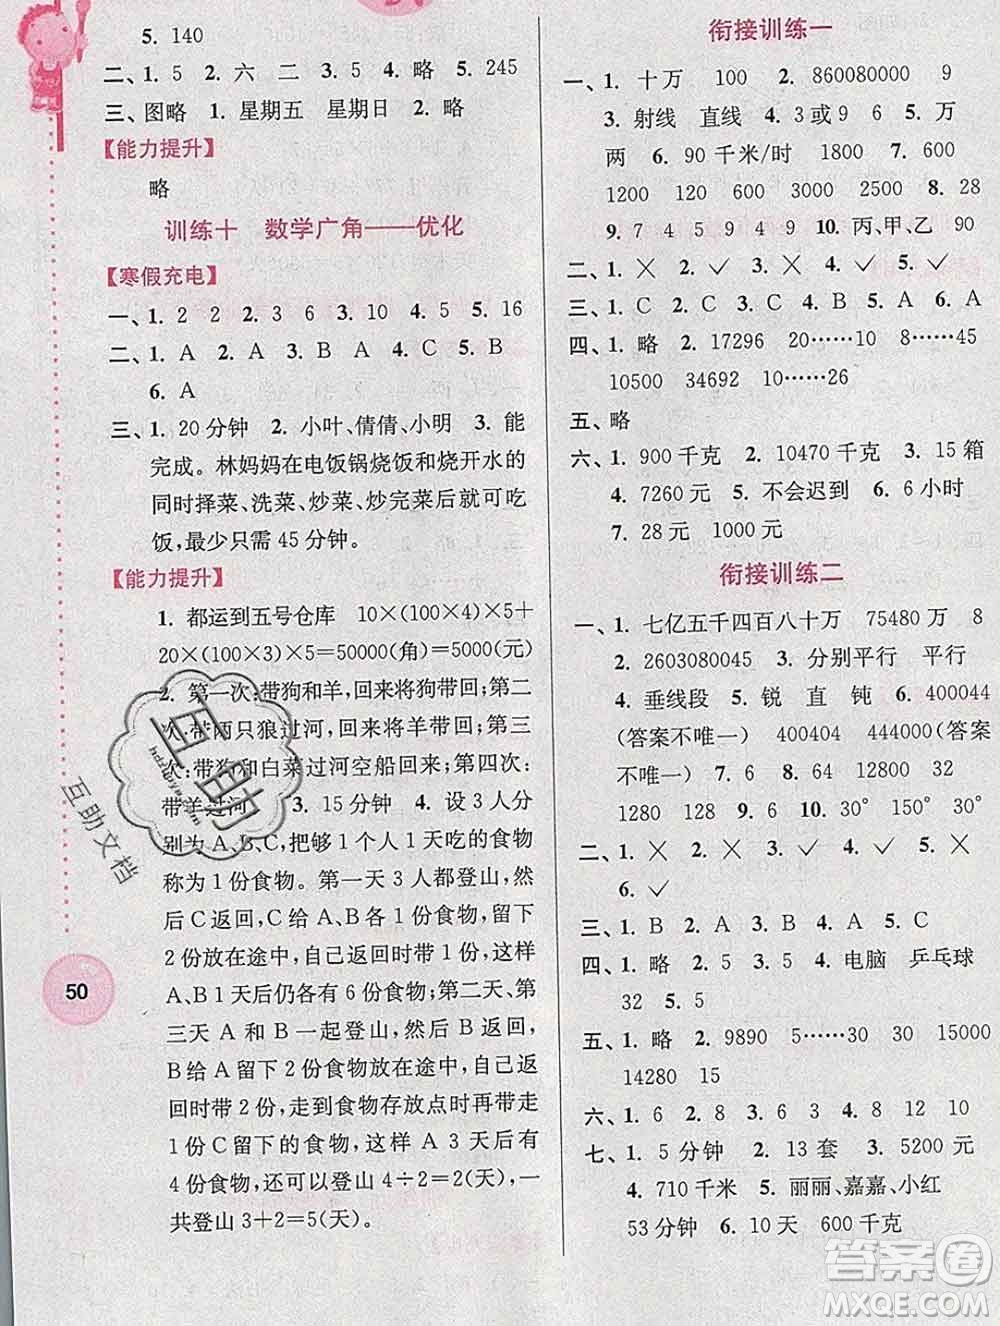 5. 140
二、1. 5 2. 六 二 3. 5 4. 略 5. 245
三、图略 1. 星期五 星期日 2. 略
【能力提升】
略
训练十 数学广角——优化
【寒假充电】
一、1. 2 2 2. 3 6 3. 10 4. 5 5. 16
二、1. A 2. A 3. A 4. C 5. B
6. A
三、1. 20分钟 2. 小叶、倩倩、小明 3. 能
完成。林妈妈在电饭锅烧饭和烧开水的
同时择菜、洗菜、炒菜、炒完菜后就可吃
饭,最少只需45分钟。
【能力提升】
1. 都运到五号仓库 10×(100×4)×5+
20×(100×3)×5=50000(角)=5000(元)
2. 第一次:带狗和羊,回来将狗带回;第二
次:带两只狼过河,回来将羊带回;第三
次:带狗和白菜过河空船回来;第四次:
带羊过河 3. 15分钟 4. 设3人分
别为A、B、C,把够1个人1天吃的食物
称为1份食物。第一天3人都登山,然
后C返回,C给A、B各1份食物,留下
2份放在途中,返回时带1份,这样
A、B1天后仍各有6份食物;第二天、第
三天A和B一起登山,然后B返回,
B给A2份食物,2份食物放在途中,
返回时带2份,走到食物存放点时再带
1份C留下的食物,这样A3天后有
4份食物,还可登山4÷2=2(天),一
共登山3+2=5(天)。
50
衔接训练一
一、1. 十万 100 2. 860080000 9
3. 射线 直线 4. 3或9 6 5. 万
两 6. 90千米/时 1800 7. 600
1200 120 600 3000 2500 8. 28
9. 7 4 5 9 2 10. 丙、甲、乙 90
二、1. × 2. ✓ 3. ✓ 4. ✓ 5. ✓
三、1. C 2. C 3. C 4. B 5. A 6. A
四、1. 略 2. 17296 20……8 45
10500 34692 10……26
五、略
六、1. 900千克 2. 10470千克 3. 15箱
4. 7260元 5. 不会迟到 6. 6小时
7. 28元 1000元
衔接训练二
一、1. 七亿五千四百八十万 75480万 8
2. 2603080045 3. 分别平行 平行
4. 垂线段 5. 锐 直 钝 6. 400044
(答案不唯一) 400404 444000(答案
不唯一) 7. 6 8. 64 12800 32
1280 128 9. 6 10. 30° 150° 30°
二、1. × 2. × 3. × 4. ✓ 5. ×
6. ✓
三、1. B 2. A 3. A 4. A 5. C
四、1. 略 2. 4 3. 4 4. 电脑 乒乓球
32 5. 5
五、1. 略 2. 9890 5……30 30 15000
14280 15
六、1. 6 2. 8 3. 6 4. 8 12 10
七、1. 5分钟 2. 13套 3. 5200元
4. 710千米 5. 丽丽、嘉嘉、小红
53分钟 6. 10天 600千克
互助
互助文档
答案圈
MXQE.COM